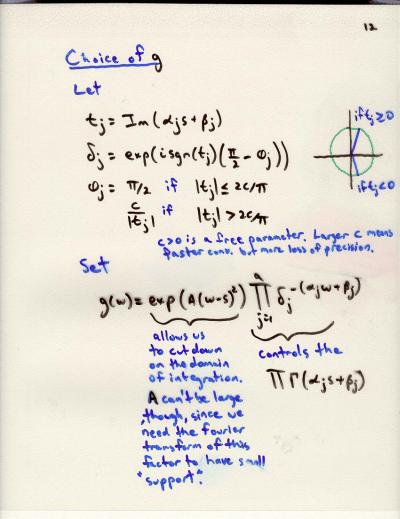 12
Choice of g
Let
t_j = Im(α_j s + β_j)
if t_j ≥ 0
δ_j = exp(i sgn(t_j)(π/2 - φ_j))
if t_j < 0
φ_j = π/2 if |t_j| ≤ 2c/π
c/|t_j| if |t_j| > 2c/π
c>0 is a free parameter. Larger c means
faster conv. but more loss of precision.
Set
g(w) = exp(A(w-s)²) ∏_{j=1}^{a} δ_j^{-(α_j w + β_j)}
allows us
to cut down
on the domain
of integration.
A can't be large
though, since we
need the fourier
transform of this
factor to have small
"support".
controls the
∏ Γ(α_j s + β_j)